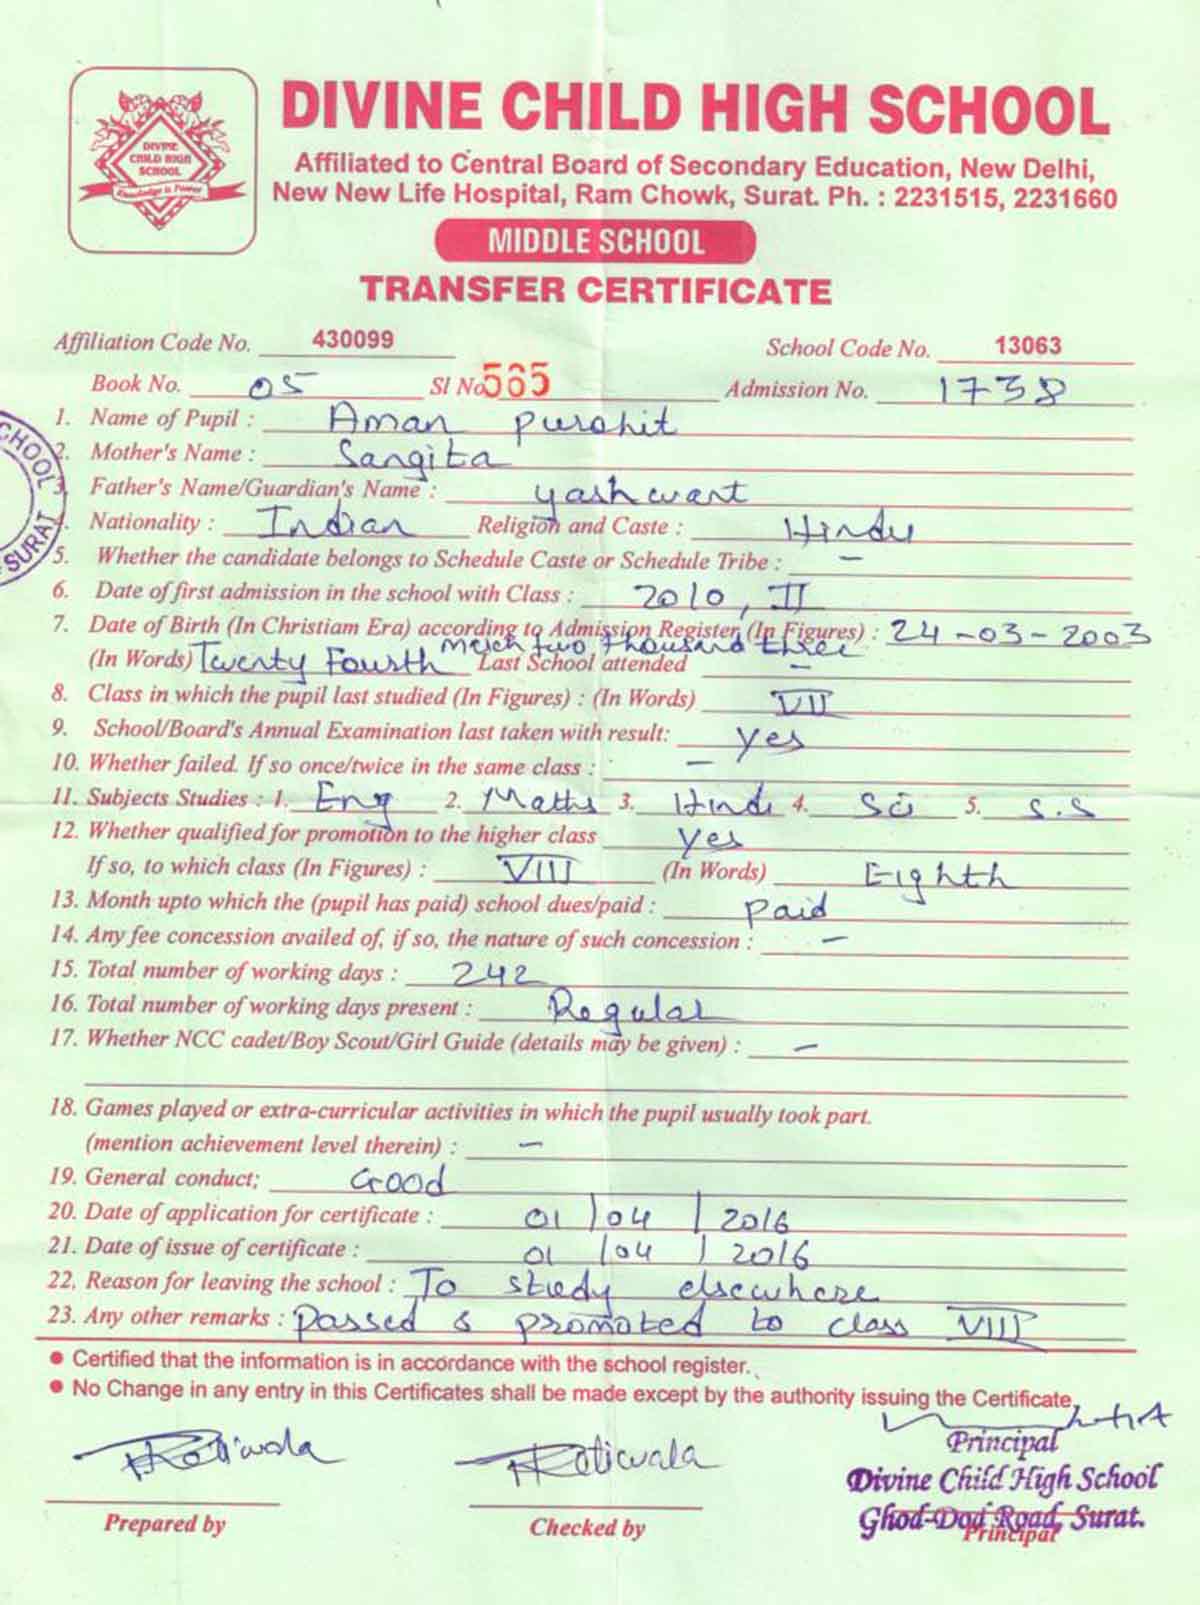 DIVINE CHILD HIGH SCHOOL
Knowledge is Power
DIVINE CHILD HIGH SCHOOL
Affiliated to Central Board of Secondary Education, New Delhi,
New New Life Hospital, Ram Chowk, Surat. Ph. : 2231515, 2231660
MIDDLE SCHOOL
TRANSFER CERTIFICATE
Affiliation Code No. 430099 School Code No. 13063
Book No. 05 Sl No. 565 Admission No. 1738
1. Name of Pupil : Aman Purohit
2. Mother's Name : Sangita
3. Father's Name/Guardian's Name : Yashwant
4. Nationality : Indian Religion and Caste : Hindu
5. Whether the candidate belongs to Schedule Caste or Schedule Tribe : –
6. Date of first admission in the school with Class : 2010, II
7. Date of Birth (In Christiam Era) according to Admission Register (In Figures) : 24-03-2003
(In Words) Twenty Fourth March two thousand three Last School attended –
8. Class in which the pupil last studied (In Figures) : (In Words) VII
9. School/Board's Annual Examination last taken with result: Yes
10. Whether failed. If so once/twice in the same class : –
11. Subjects Studies : 1. Eng 2. Maths 3. Hindi 4. Sci 5. S.S
12. Whether qualified for promotion to the higher class Yes
If so, to which class (In Figures) : VIII (In Words) Eighth
13. Month upto which the (pupil has paid) school dues/paid : Paid
14. Any fee concession availed of, if so, the nature of such concession : –
15. Total number of working days : 242
16. Total number of working days present : Regular
17. Whether NCC cadet/Boy Scout/Girl Guide (details may be given) : –
18. Games played or extra-curricular activities in which the pupil usually took part.
(mention achievement level therein) : –
19. General conduct; Good
20. Date of application for certificate : 01/04/2016
21. Date of issue of certificate : 01/04/2016
22. Reason for leaving the school : To study elsewhere
23. Any other remarks : Passed & promoted to class VIII
• Certified that the information is in accordance with the school register.
• No Change in any entry in this Certificates shall be made except by the authority issuing the Certificate.
Principal
Divine Child High School
Ghod-Dod Road, Surat.
Prepared by Checked by Principal
SCHOOL
SURAT